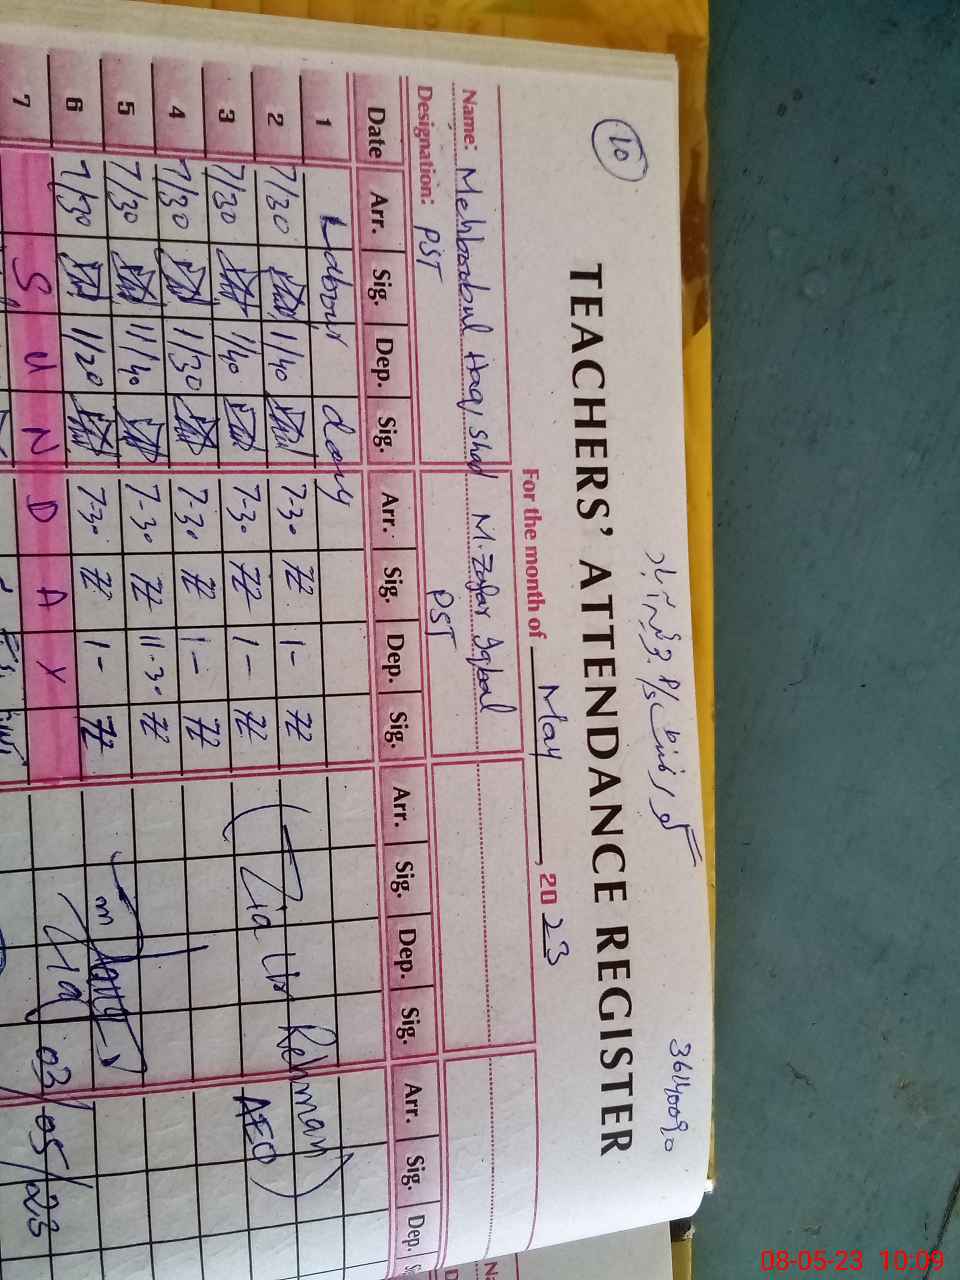 10
36140090
TEACHERS' ATTENDANCE REGISTER
For the month of May, 2023
Name: Mehboobul Haq Shad M. Zafar Iqbal
Designation: PST PST
Date Arr. Sig. Dep. Sig. Arr. Sig. Dep. Sig. Arr. Sig. Dep. Sig. Arr. Sig. Dep.
1 Labour day
2 7/30 1/40 7-30 1-
3 7/30 1/40 7-30 1-
4 7/30 1/30 7-30 1-
5 7/30 11/40 7-30 11-30
6 7/30 1/20 7-30 1-
7 SUNDAY
(Zia Ur Rehman)
AEO
03/05/23
08-05-23 10:09